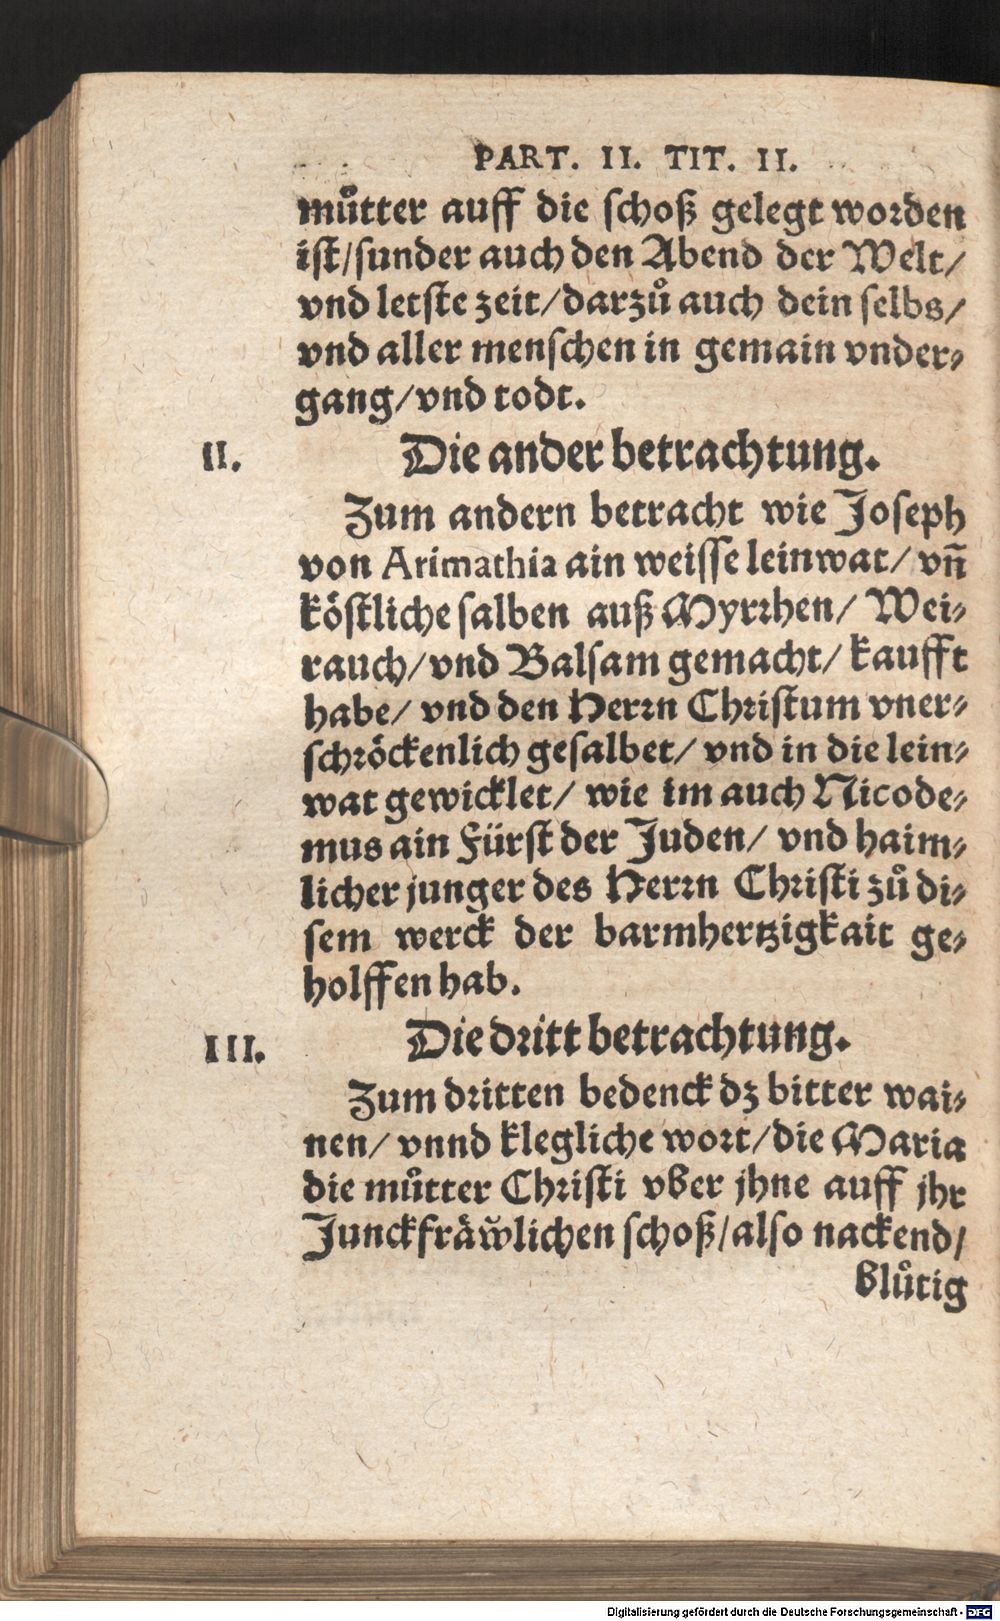 PART. II. TIT. II.
muͦtter auff die schoß gelegt worden
ist/sunder auch den Abend der Welt/
vnd letste zeit/darzuͦ auch dein selbs/
vnd aller menschen in gemain vnder-
gang/vnd todt.
II. Die ander betrachtung.
Zum andern betracht wie Joseph
von Arimathia ain weisse leinwat/ vñ
köstliche salben auß Myrrhen/ Wei-
rauch/vnd Balsam gemacht/ kaufft
habe/ vnd den Herrn Christum vner-
schröckenlich gesalbet/ vnd in die lein-
wat gewicklet/ wie im auch Nicode-
mus ain Fürst der Juden/ vnd haim-
licher junger des Herrn Christi zuͦ di-
sem werck der barmhertzigkait ge-
holffen hab.
III. Die dritt betrachtung.
Zum dritten bedenck dz bitter wai-
nen/ vnnd klegliche wort/die Maria
die muͦtter Christi vber jhne auff jhr
Junckfräwlichen schoß/also nackend/
bluͦtig
Digitalisierung gefördert durch die Deutsche Forschungsgemeinschaft - DFG